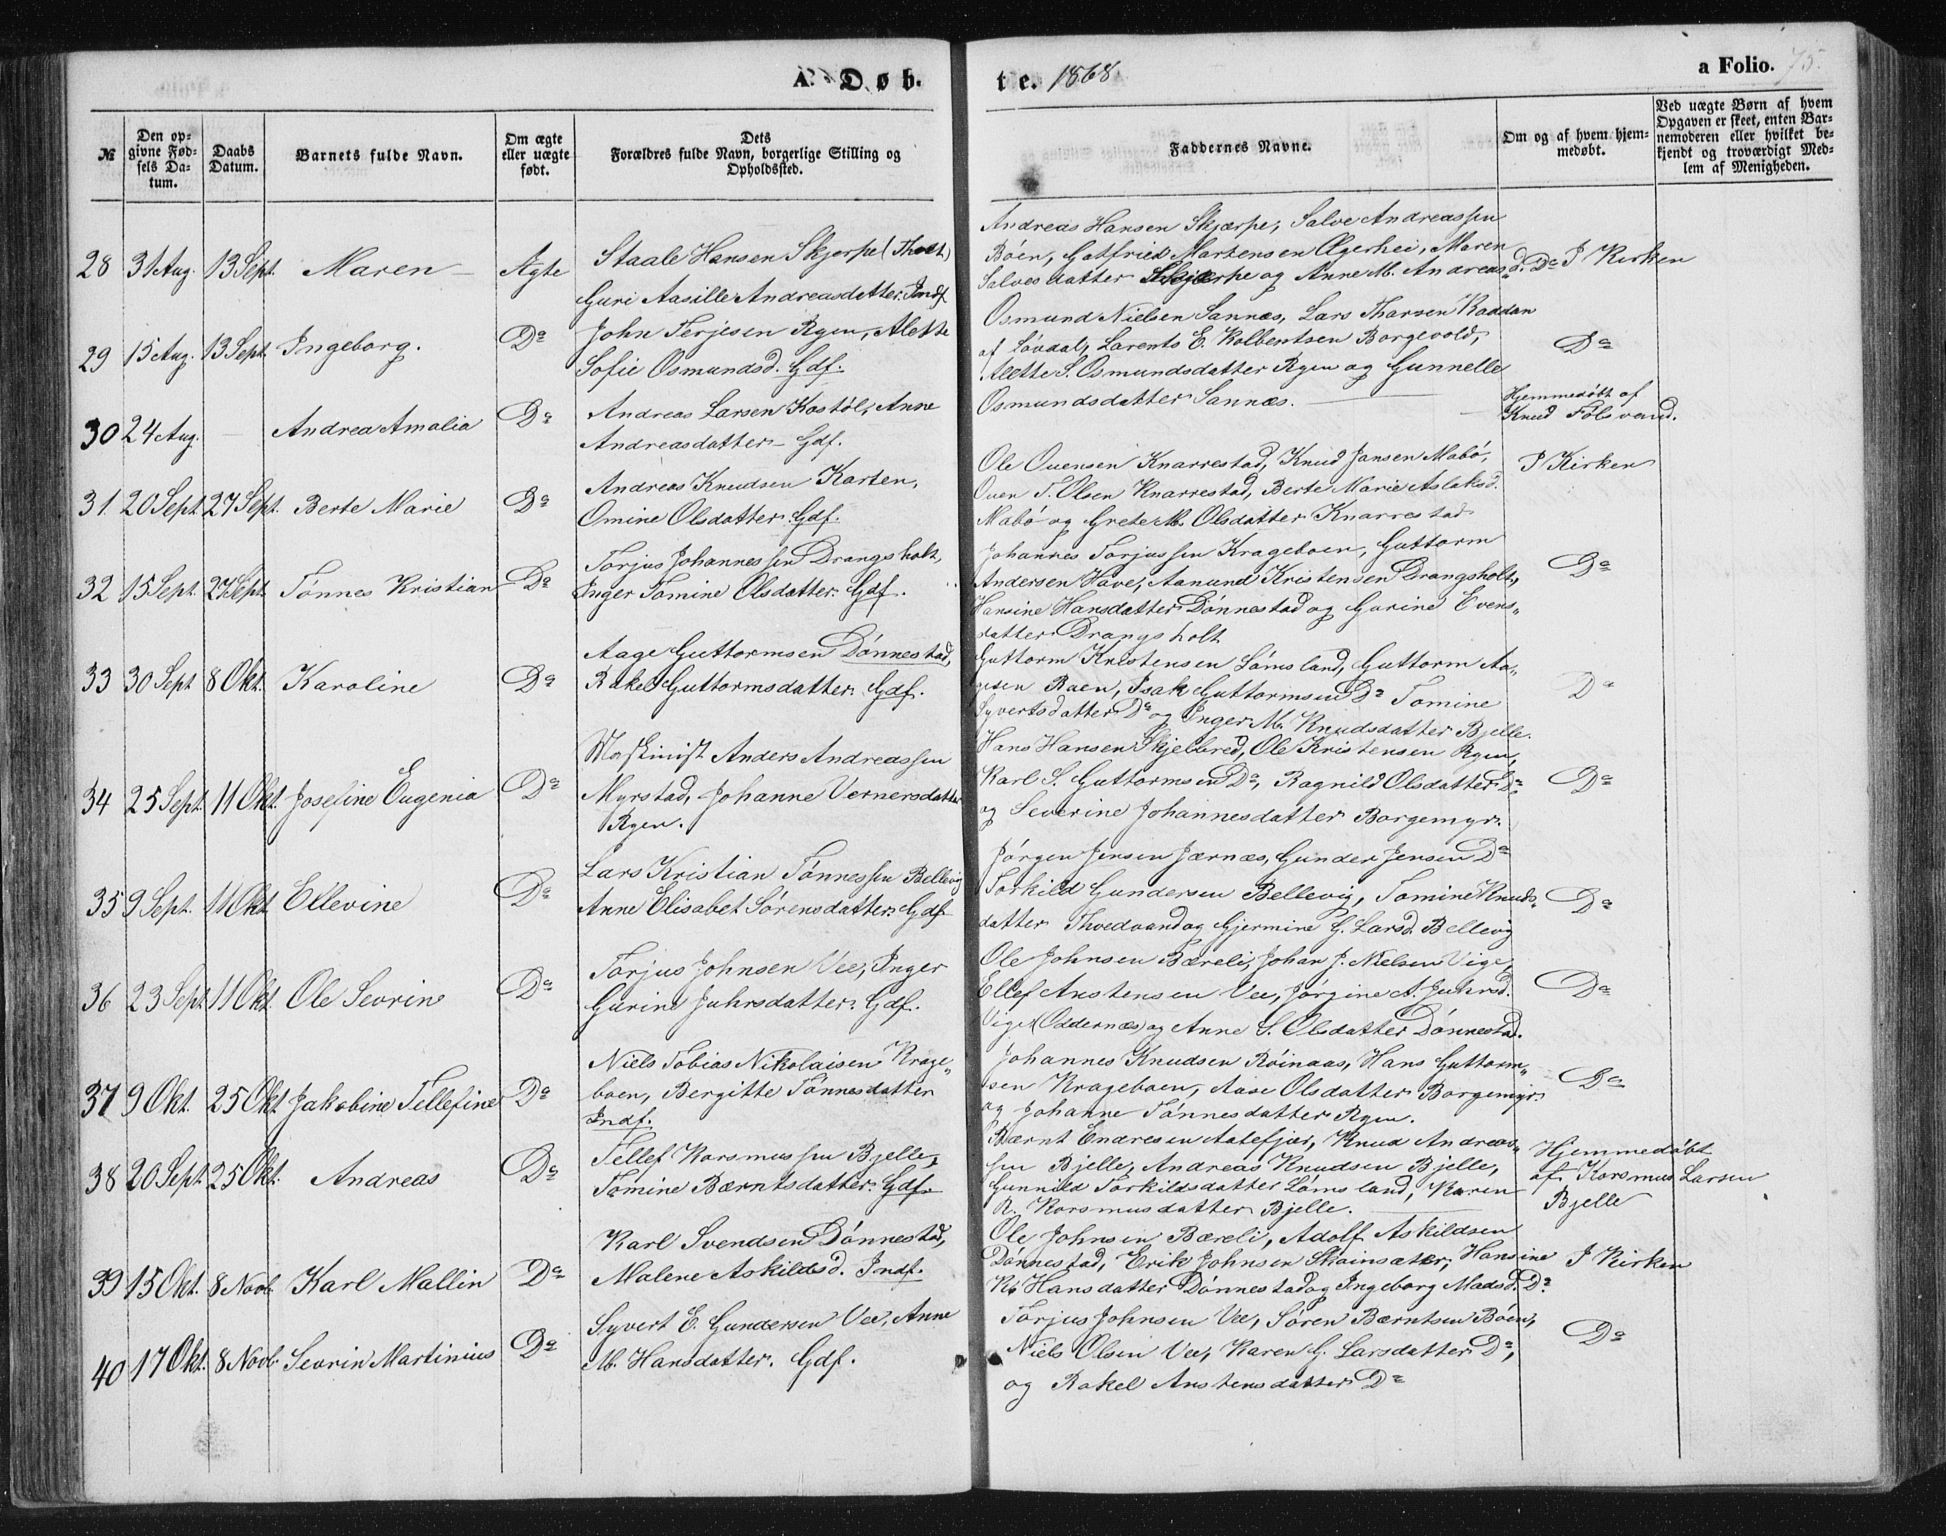 A. Døb.
te. 1868
a Folio. 75.
№
Den opgivne Fødsels Datum.
Daabs Datum.
Barnets fulde Navn.
Om ægte eller uægte født.
Dets Forældres fulde Navn, borgerlige Stilling og Opholdssted.
Faddernes Navne.
Om og af hvem hjemmedøbt.
Ved uægte Børn af hvem Opgaven er skeet, enten Barnemoderen eller hvilket bekjendt og troværdigt Medlem af Menigheden.
28 31 Aug. 13 Sept. Maren Ægte
Staale Hansen Skjerpe (Thvet)
Guri Aasille Andreasdatter. Indf.
Andreas Hansen Skjærpe, Salve Andreassen
Bøen, Gotfried Martensen Ægerhei, Maren
Salvesdatter Skjerpe og Anne M. Andreasd. Do
I Kirken
29 15 Aug. 13 Sept. Ingeborg. Do
John Terjesen Rgen, Alette
Sofie Osmundsd. Gdf.
Osmund Nielsen Sannæs, Lars Tharsen Raddan
af Løvdal, Larents E. Kolbentsen Borgevold,
Alette S. Osmundsdatter Rgen og Gunnelle
Osmundsdatter Sannæs.
Do
30 24 Aug. - Andrea Amalia Do
Andreas Larsen Kostøl, Anne
Andreasdatter - Gdf.
Hjemmedøbt af
Knud Følsvand.
31 20 Sept. 27 Sept. Berte Marie Do
Andreas Knudsen Karten,
Omine Olsdatter Gdf.
Ole Ouensen Knarrestad, Knud Jansen Mabø,
Ouen T. Olsen Knarrestad, Berte Marie Aslaksd.
Mabø og Grete M. Olsdatter Knarrestad
I Kirken
32 15 Sept. 27 Sept. Tønnes Kristian Do
Torjus Johannessen Drangsholt,
Inger Tomine Olsdatter. Gdf.
Johannes Torjussen Krageboen, Guttorm
Andersen Have, Aanund Kristensen Drangsholt,
Hansine Hansdatter Dønnestad og Gurine Evens-
datter Drangsholt
Do
33 30 Sept 8 Okt. Karoline Do
Aage Guttormsen Dønnestad,
Rakel Guttormsdatter. Gdf.
Guttorm Kristensen Lømsland, Guttorm Aa-
gesen Raen, Isak Guttormsen Do Tomine
Syvertsdatter Do og Inger M. Knudsdatter Bjelle.
Do
34 25 Sept. 11 Okt. Josefine Eugenia Do
Maskinist Anders Andreassen
Myrstad, Johanne Vernersdatter
Rgen.
Hans Hansen Skjelbred, Ole Kristensen Rgen,
Karl S. Guttormsen Do, Ragnild Olsdatter Do
og Severine Johannesdatter Borgemyr.
Do
35 9 Sept. 11 Okt. Ellevine Do
Lars Kristian Tønnessen Bellevig
Anne Elisabet Sørensdatter. Gdf.
Jørgen Jensen Jærnæs, Gunder Jensen Do
Torkild Gundersen Bellevig, Tomine Knuds-
datter Thvedvand og Gjermine G. Larsd. Bellevig
Do
36 23 Sept. 11 Okt. Ole Sevrin Do
Torjus Johnsen Vee, Inger
Gurine Juhrsdatter. Gdf.
Ole Johnsen Bæreli, Johan J. Nielsen Vige,
Ellef Anstensen Vee, Jørgine A. Juhrsd.
Vige (Oddernæs) og Anne S. Olsdatter Dønnestad.
Do
37 9 Okt. 25 Okt. Jakobine Tellefine Do
Niels Tobias Nikolaisen Krage-
boen, Bergitte Tønnesdatter
Indf.
Johannes Knudsen Røinaas, Hans Guttorm-
sen Krageboen, Aase Olsdatter Borgemyr
og Johanne Tønnesdatter Rgen.
Do
38 20 Sept. 25 Okt. Andreas Do
Tellef Korsmussen Bjelle,
Tomine Bærntsdatter. Gdf.
Bærnt Endresen Aatefjær, Knud Andreas-
sen Bjelle, Andreas Knudsen Bjelle,
Gunnild Torkildsdatter Lømsland, Karen
R. Korsmusdatter Bjelle.
Hjemmedøbt
af Korsmus Larsen
Bjelle
39 15 Okt. 8 Novb. Karl Mallin Do
Karl Svendsen Dønnestad,
Malene Askildsd. Indf.
Ole Johnsen Bæreli, Adolf Askildsen
Dønnestad, Erik Johnsen Skainsæter, Hansine
K. Hansdatter Dønnestad og Ingeborg Madsd. Do
I Kirken
40 17 Okt. 8 Novb. Sevrin Martinius Do
Syvert E. Gundersen Vee, Anne
M. Hansdatter. Gdf.
Torjus Johnsen Vee, Søren Bærntsen Bøen,
Niels Olsen Vee, Karen G. Larsdatter Do,
og Rakel Anstensdatter Do
Do